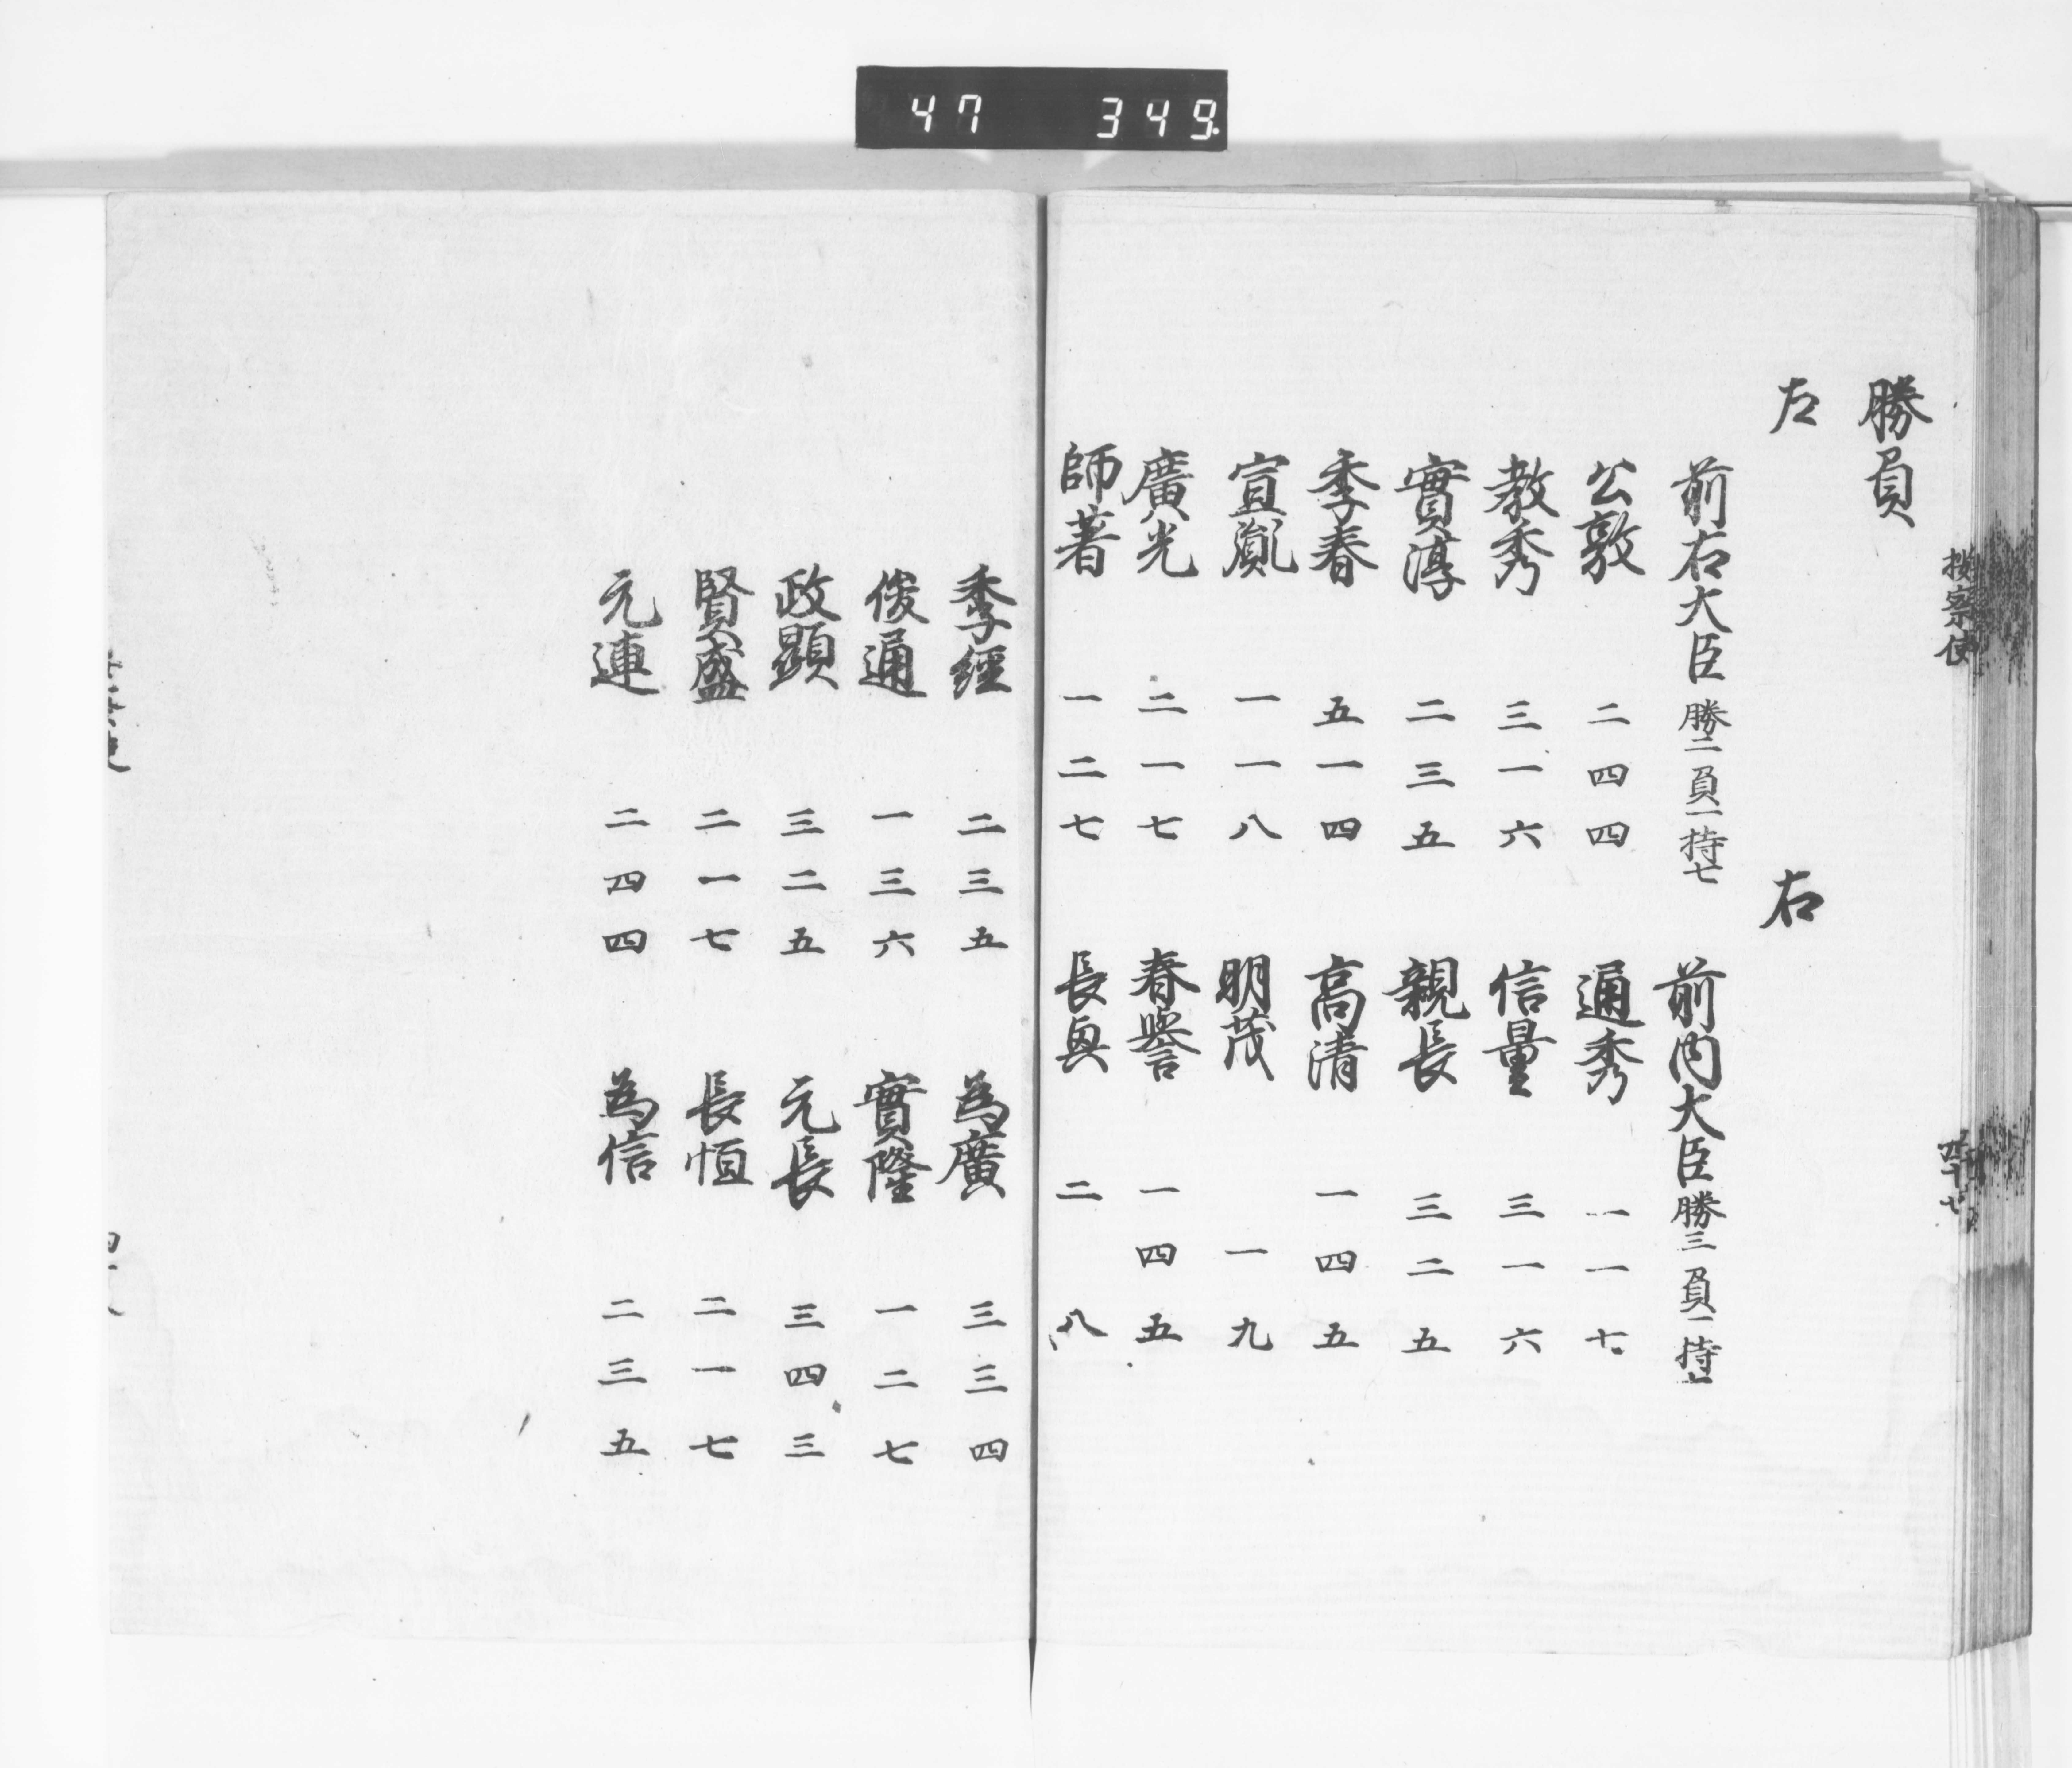 47 349
按察使
四十七
勝負
左
右
前右大臣勝二負一持七
前内大臣勝三負一持
公敦 二 四 四
通秀 一 一 七
教秀 三 一 六
信量 三 一 六
實淳 二 三 五
親長 三 二 五
季春 五 一 四
高清 一 四 五
宣胤 一 一 八
明茂 一 九
廣光 二 一 七
春譽 一 四 五
師著 一 二 七
長興 二 八
季經 二 三 五
為廣 三 三 四
俊通 一 三 六
實隆 一 二 七
政顕 三 二 五
元長 三 四 三
賢盛 二 一 七
長恒 二 一 七
元連 二 四 四
為信 二 三 五